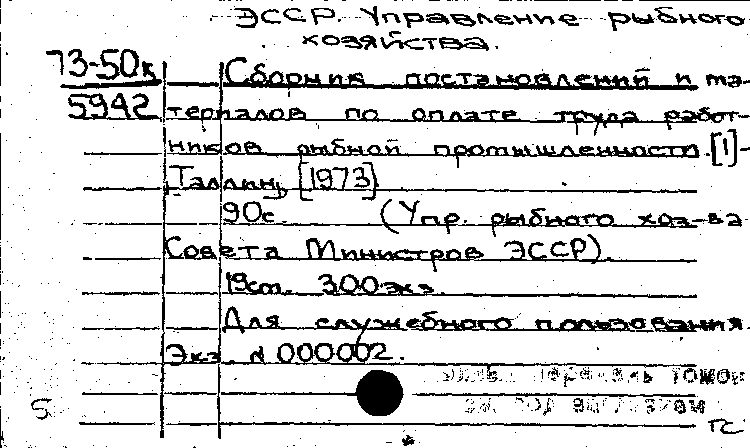 ЭССР. Управление рыбного
хозяйства.
73-50к Сборник постановлений и ма-
5942 териалов по оплате труда работ-
ников рыбной промышленности. [1]-
Таллин, [1973]
90с. (Упр. рыбного хоз-ва
Совета Министров ЭССР).
19см. 300экз.
Для служебного пользования.
Экз. № 000002.
5